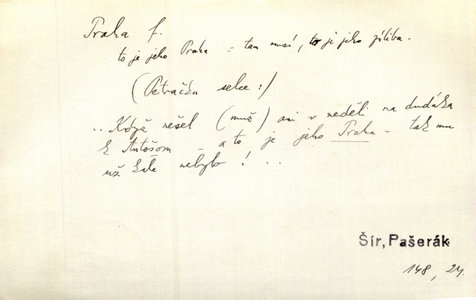 Praha f.
to je jeho Praha = tam musí, to je jeho záliba.
(Petračka selce:)
.. Když nešel (muž) ani v neděli na dudáka
k Antošom – a to je jeho Praha – tak mu
už      nebylo! ..
Šír, Pašerák
148, 24.